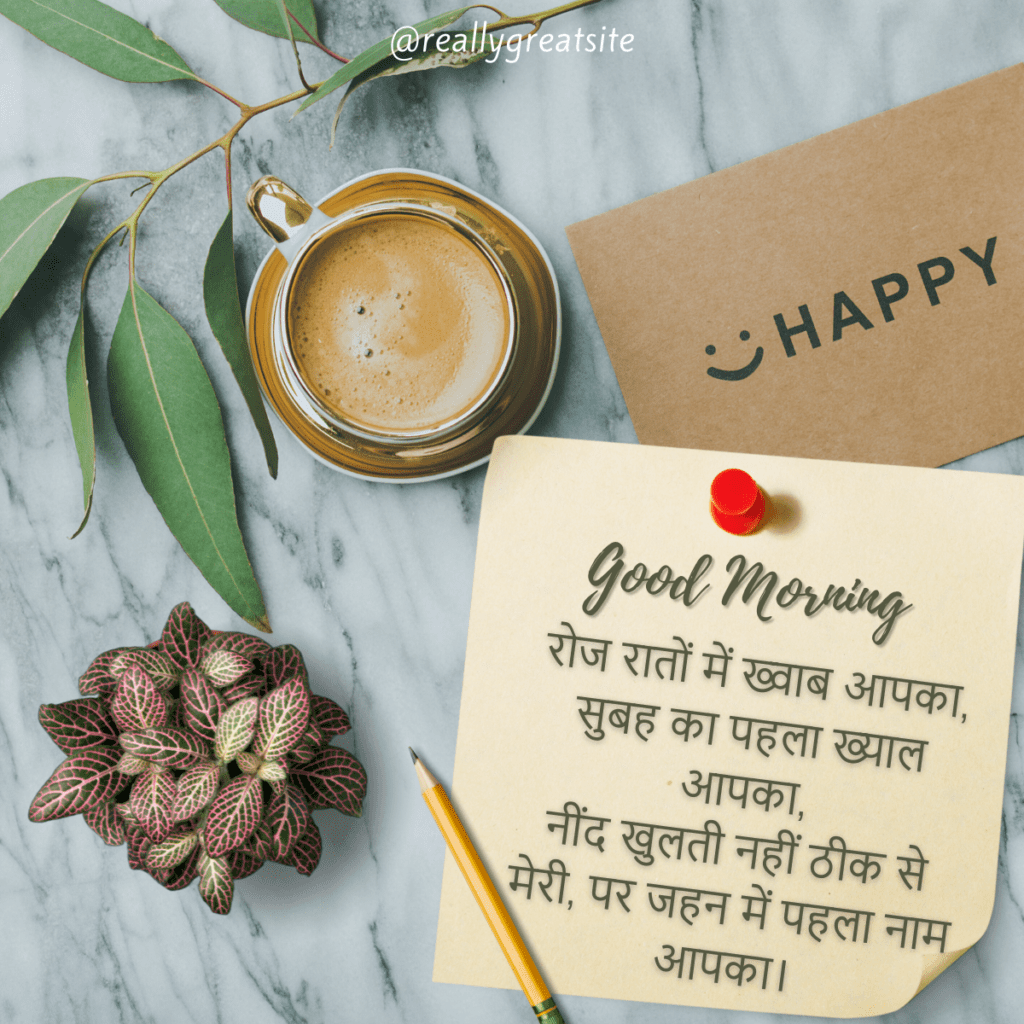 @reallygreatsite
HAPPY
Good Morning
रोज रातों में ख्वाब आपका,
सुबह का पहला ख्याल
आपका,
नींद खुलती नहीं ठीक से
मेरी, पर जहन में पहला नाम
आपका।